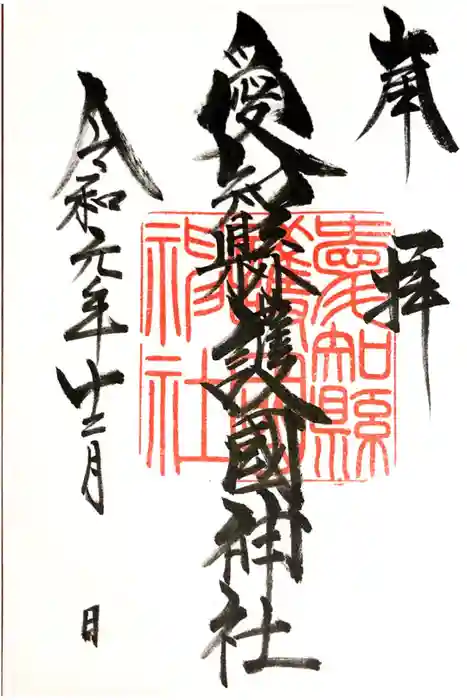 奉拝
愛知縣護國神社
愛知縣
護國
神社
令和元年十二月 日